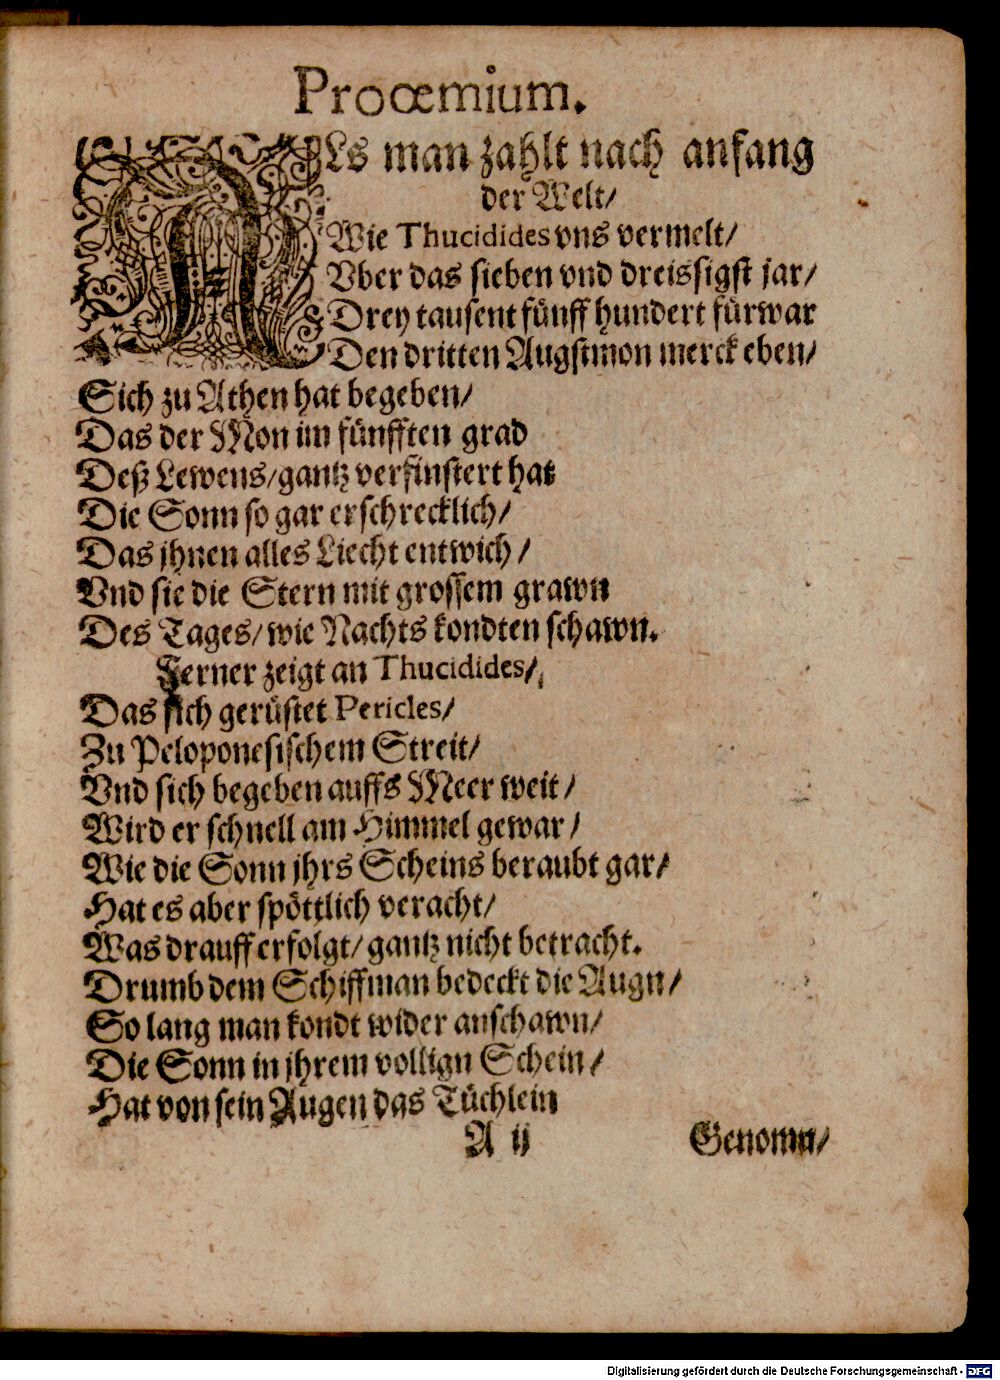 Proœmium.
ALs man zahlt nach anfang
der Welt/
Wie Thucidides vns vermelt/
Vber das sieben vnd dreissigst jar/
Drey tausent fünff hundert fürwar
Den dritten Augstmon merck eben/
Sich zu Athen hat begeben/
Das der Mon im fünfften grad
Deß Lewens/gantz verfinstert hat
Die Sonn so gar erschrecklich/
Das jhnen alles Liecht entwich/
Vnd sie die Stern mit grossem grawn
Des Tages/wie Nachts kondten schawn.
Ferner zeigt an Thucidides/
Das sich gerüstet Pericles/
Zu Peloponesischem Streit/
Vnd sich begeben auffs Meer weit/
Wird er schnell am Himmel gewar/
Wie die Sonn jhrs Scheins beraubt gar/
Hat es aber spöttlich veracht/
Was drauff erfolgt/gantz nicht betracht.
Drumb dem Schiffman bedeckt die Augn/
So lang man kondt wider anschawn/
Die Sonn in jhrem vollign Schein/
Hat von sein Augen das Tüchlein
A ij Genomn/
Digitalisierung gefördert durch die Deutsche Forschungsgemeinschaft - DFG